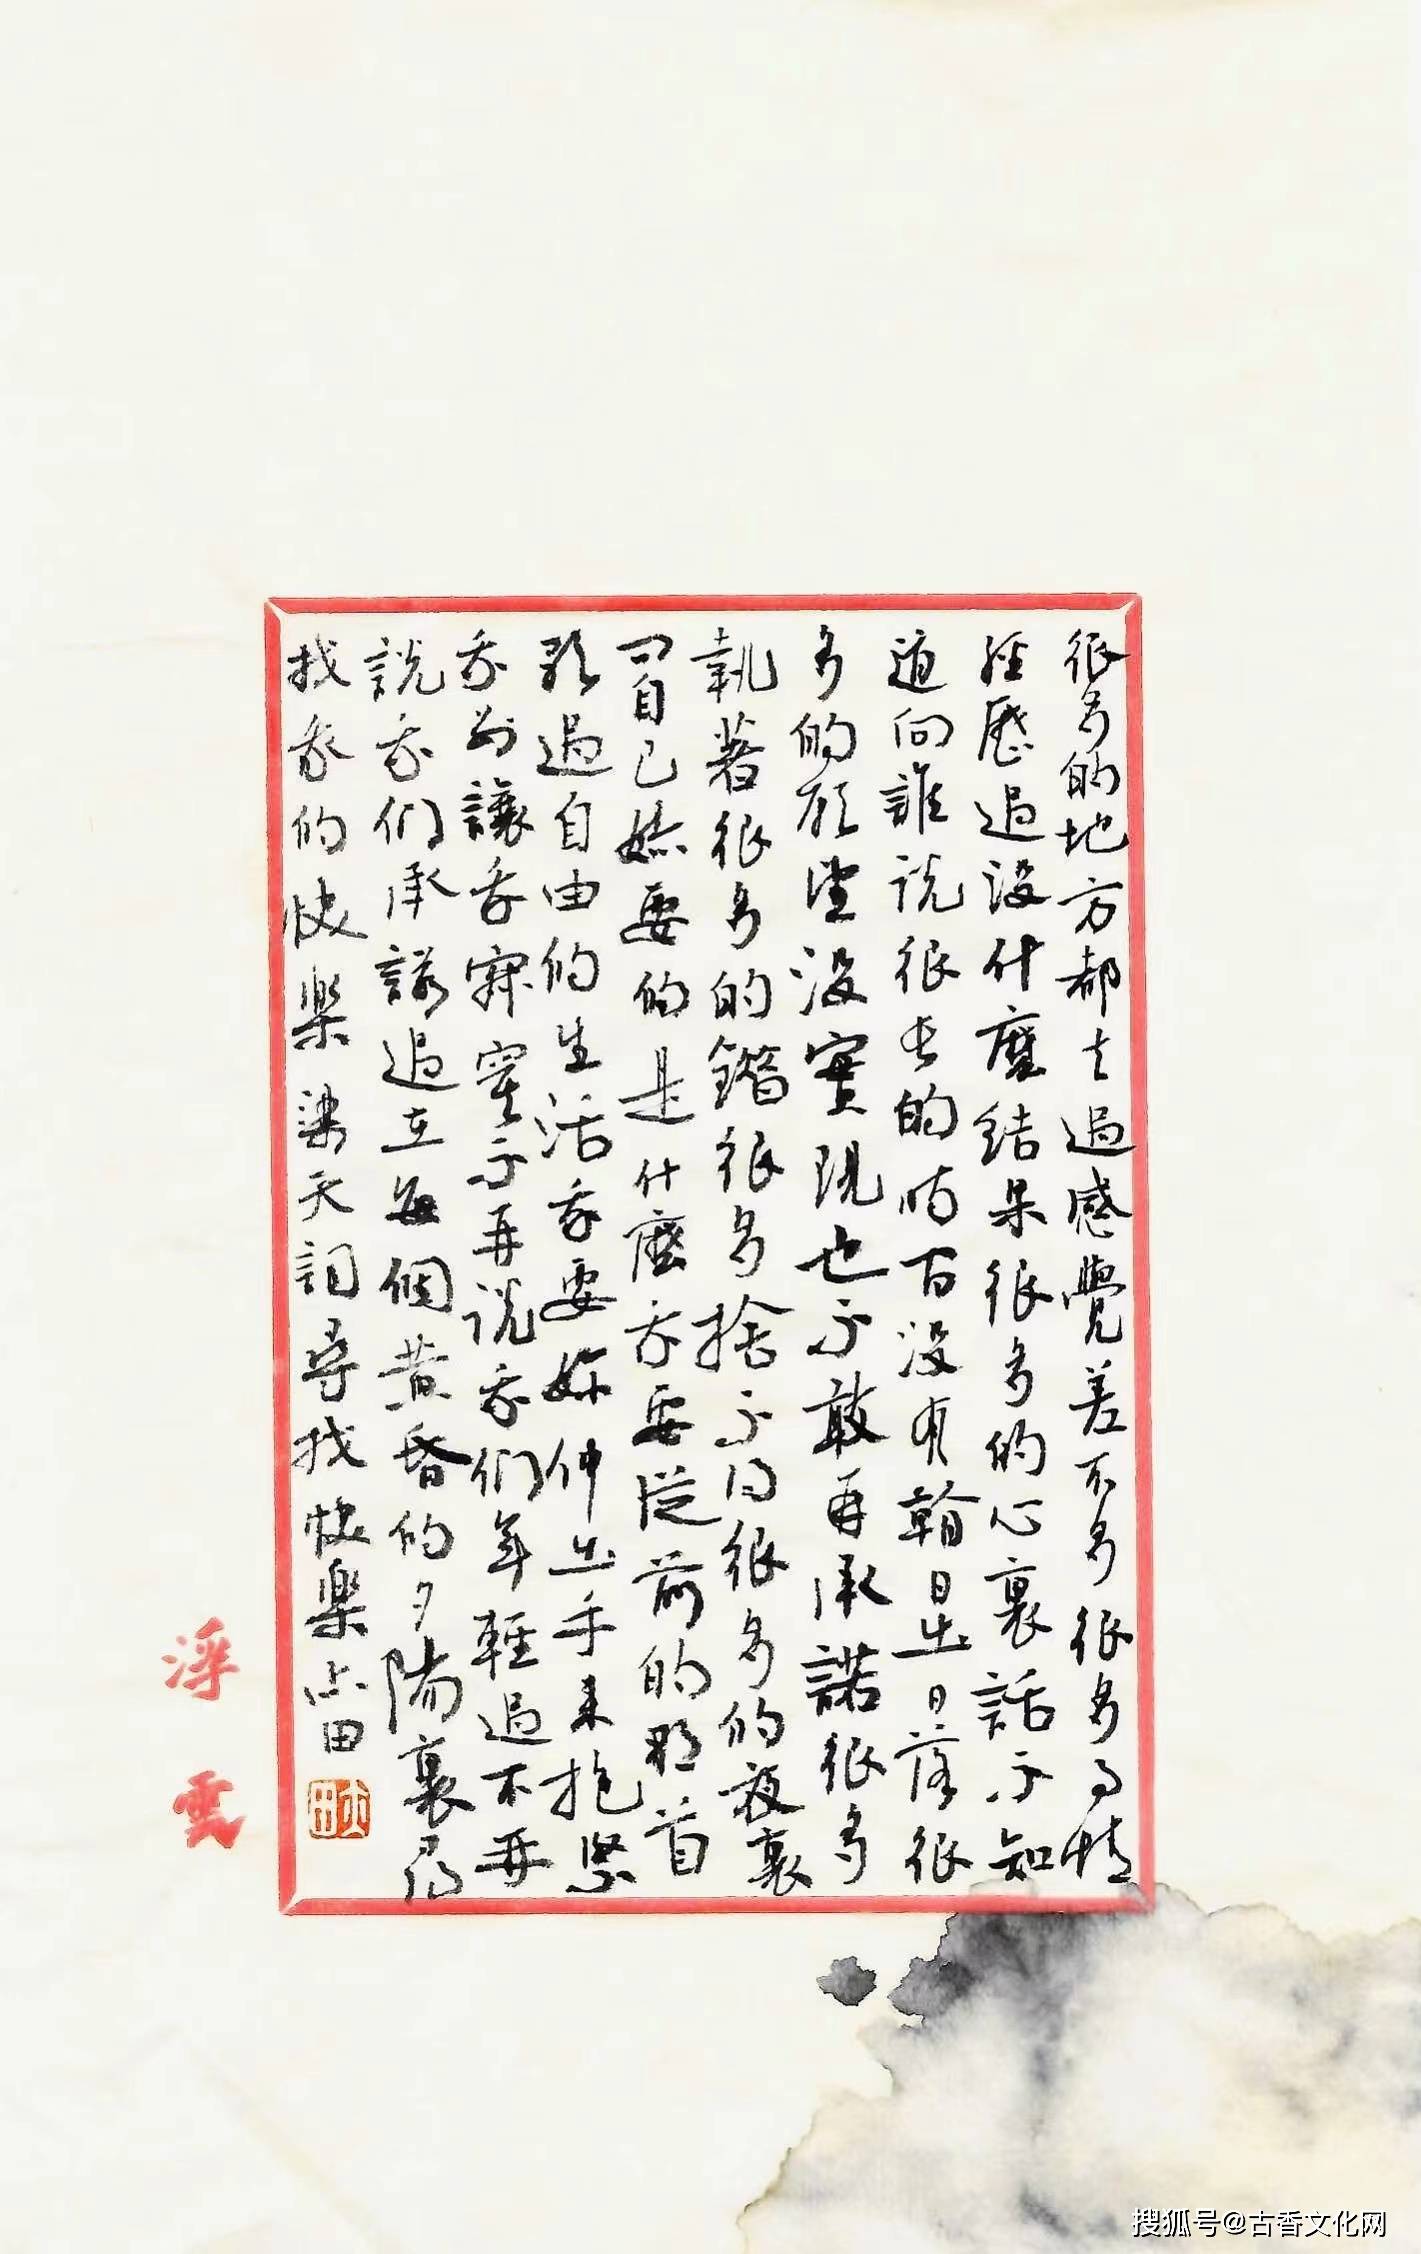 很多的地方都去過感覺差不多很多事情
經歷過沒什麼結果很多的心裏話不知
道向誰說很長的時间沒有翰日出日落很
多的願望沒實現也不敢再承諾很多
執著很多的錯很多捨不得很多的夜裏
問自己始要的是什麼我要從前的那首
歌過自由的生活我要妳伸出手來抱緊
我別讓我寂寞不再說我們年輕過不再
說我們承諾過在每個黄昏的夕陽裏尋
找我的快樂 梁天詞尋找快樂 占田
浮雲
搜狐号@古香文化网